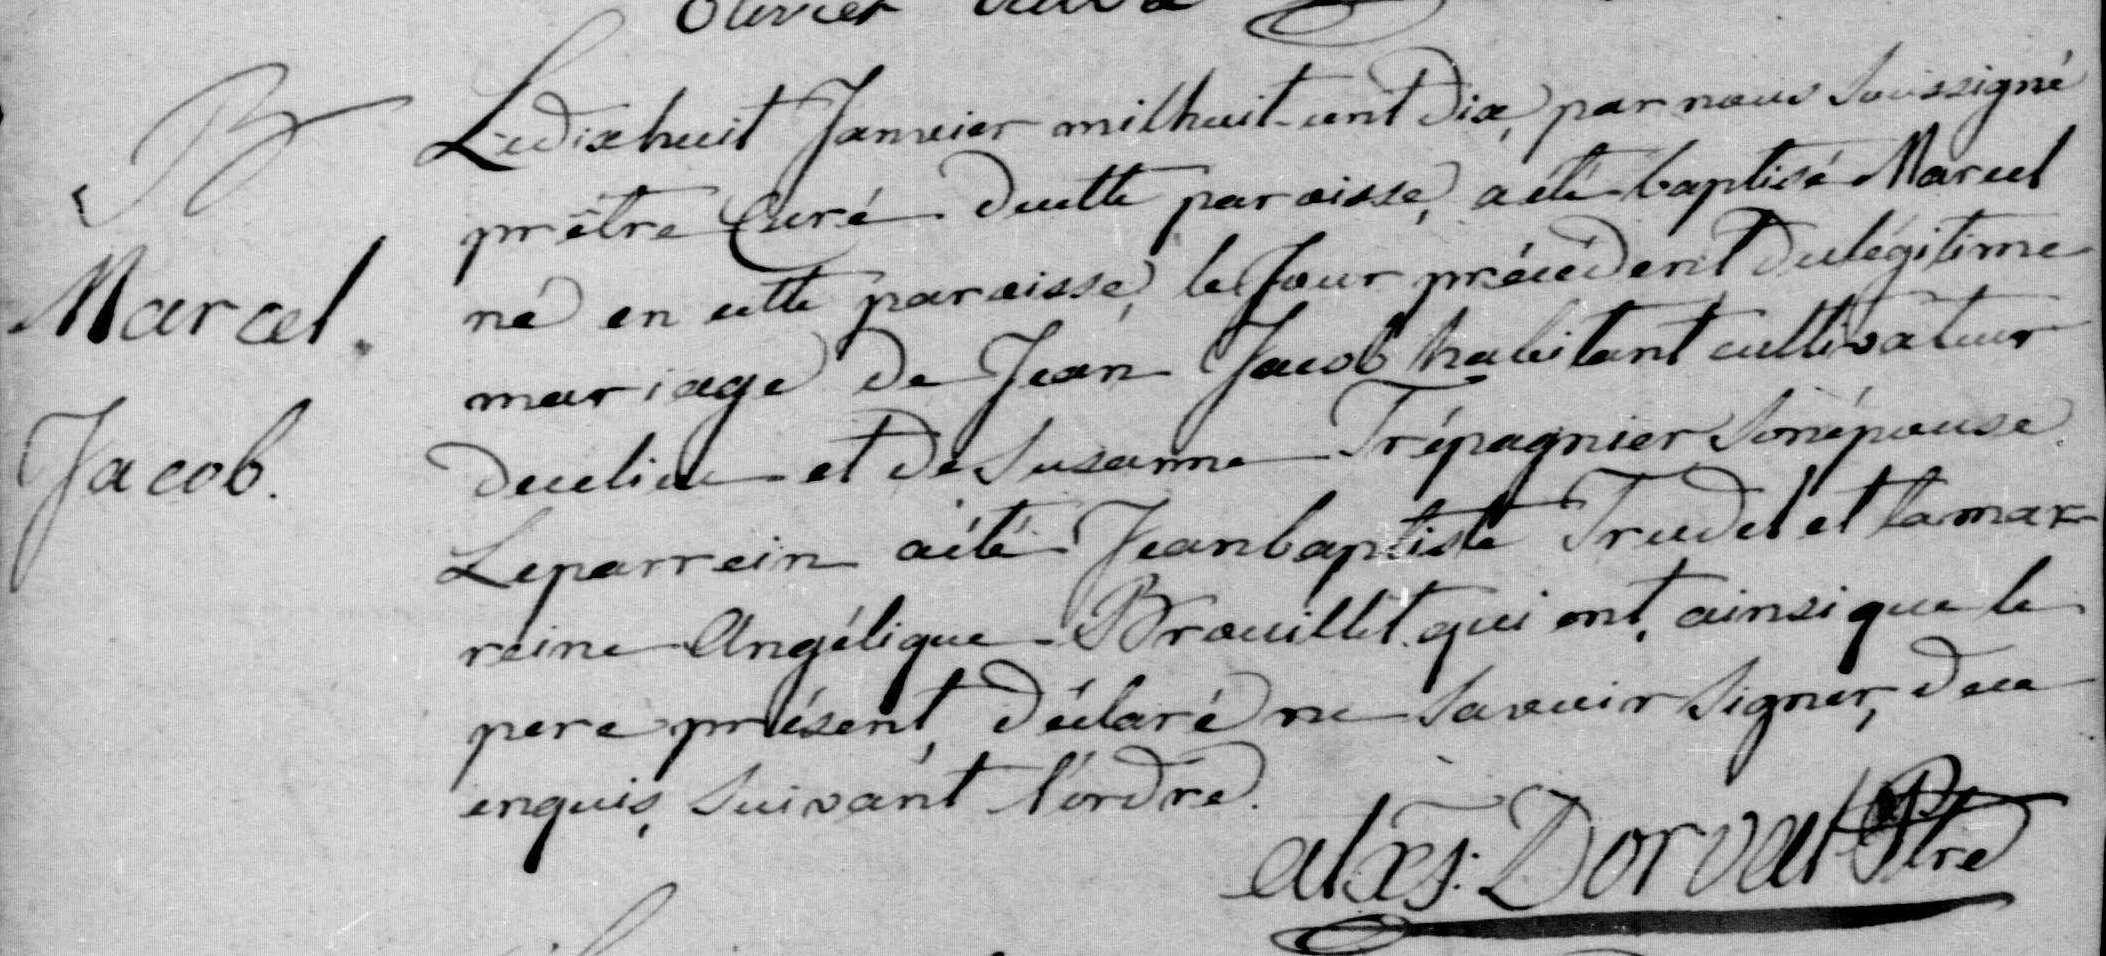 Olivier
B
Marcel
Jacob.
Le dix huit Janvier mil huit-cent Dix, par nous Soussigné
prêtre Curé de cette paroisse, a été baptisé Marcel
né en cette paroisse, le Jour précédent du légitime
mariage de Jean Jacob habitant cultivateur
de ce lieu et de Susanne Trépagnier Son épouse.
Le parrein a été Jean baptiste Trudel et la mar-
reine Angélique Brouillet qui ont, ainsi que le
pere présent, déclaré ne Savoir Signer, de ce
enquis, Suivant l'ordre.
alxs: Dorval Ptre